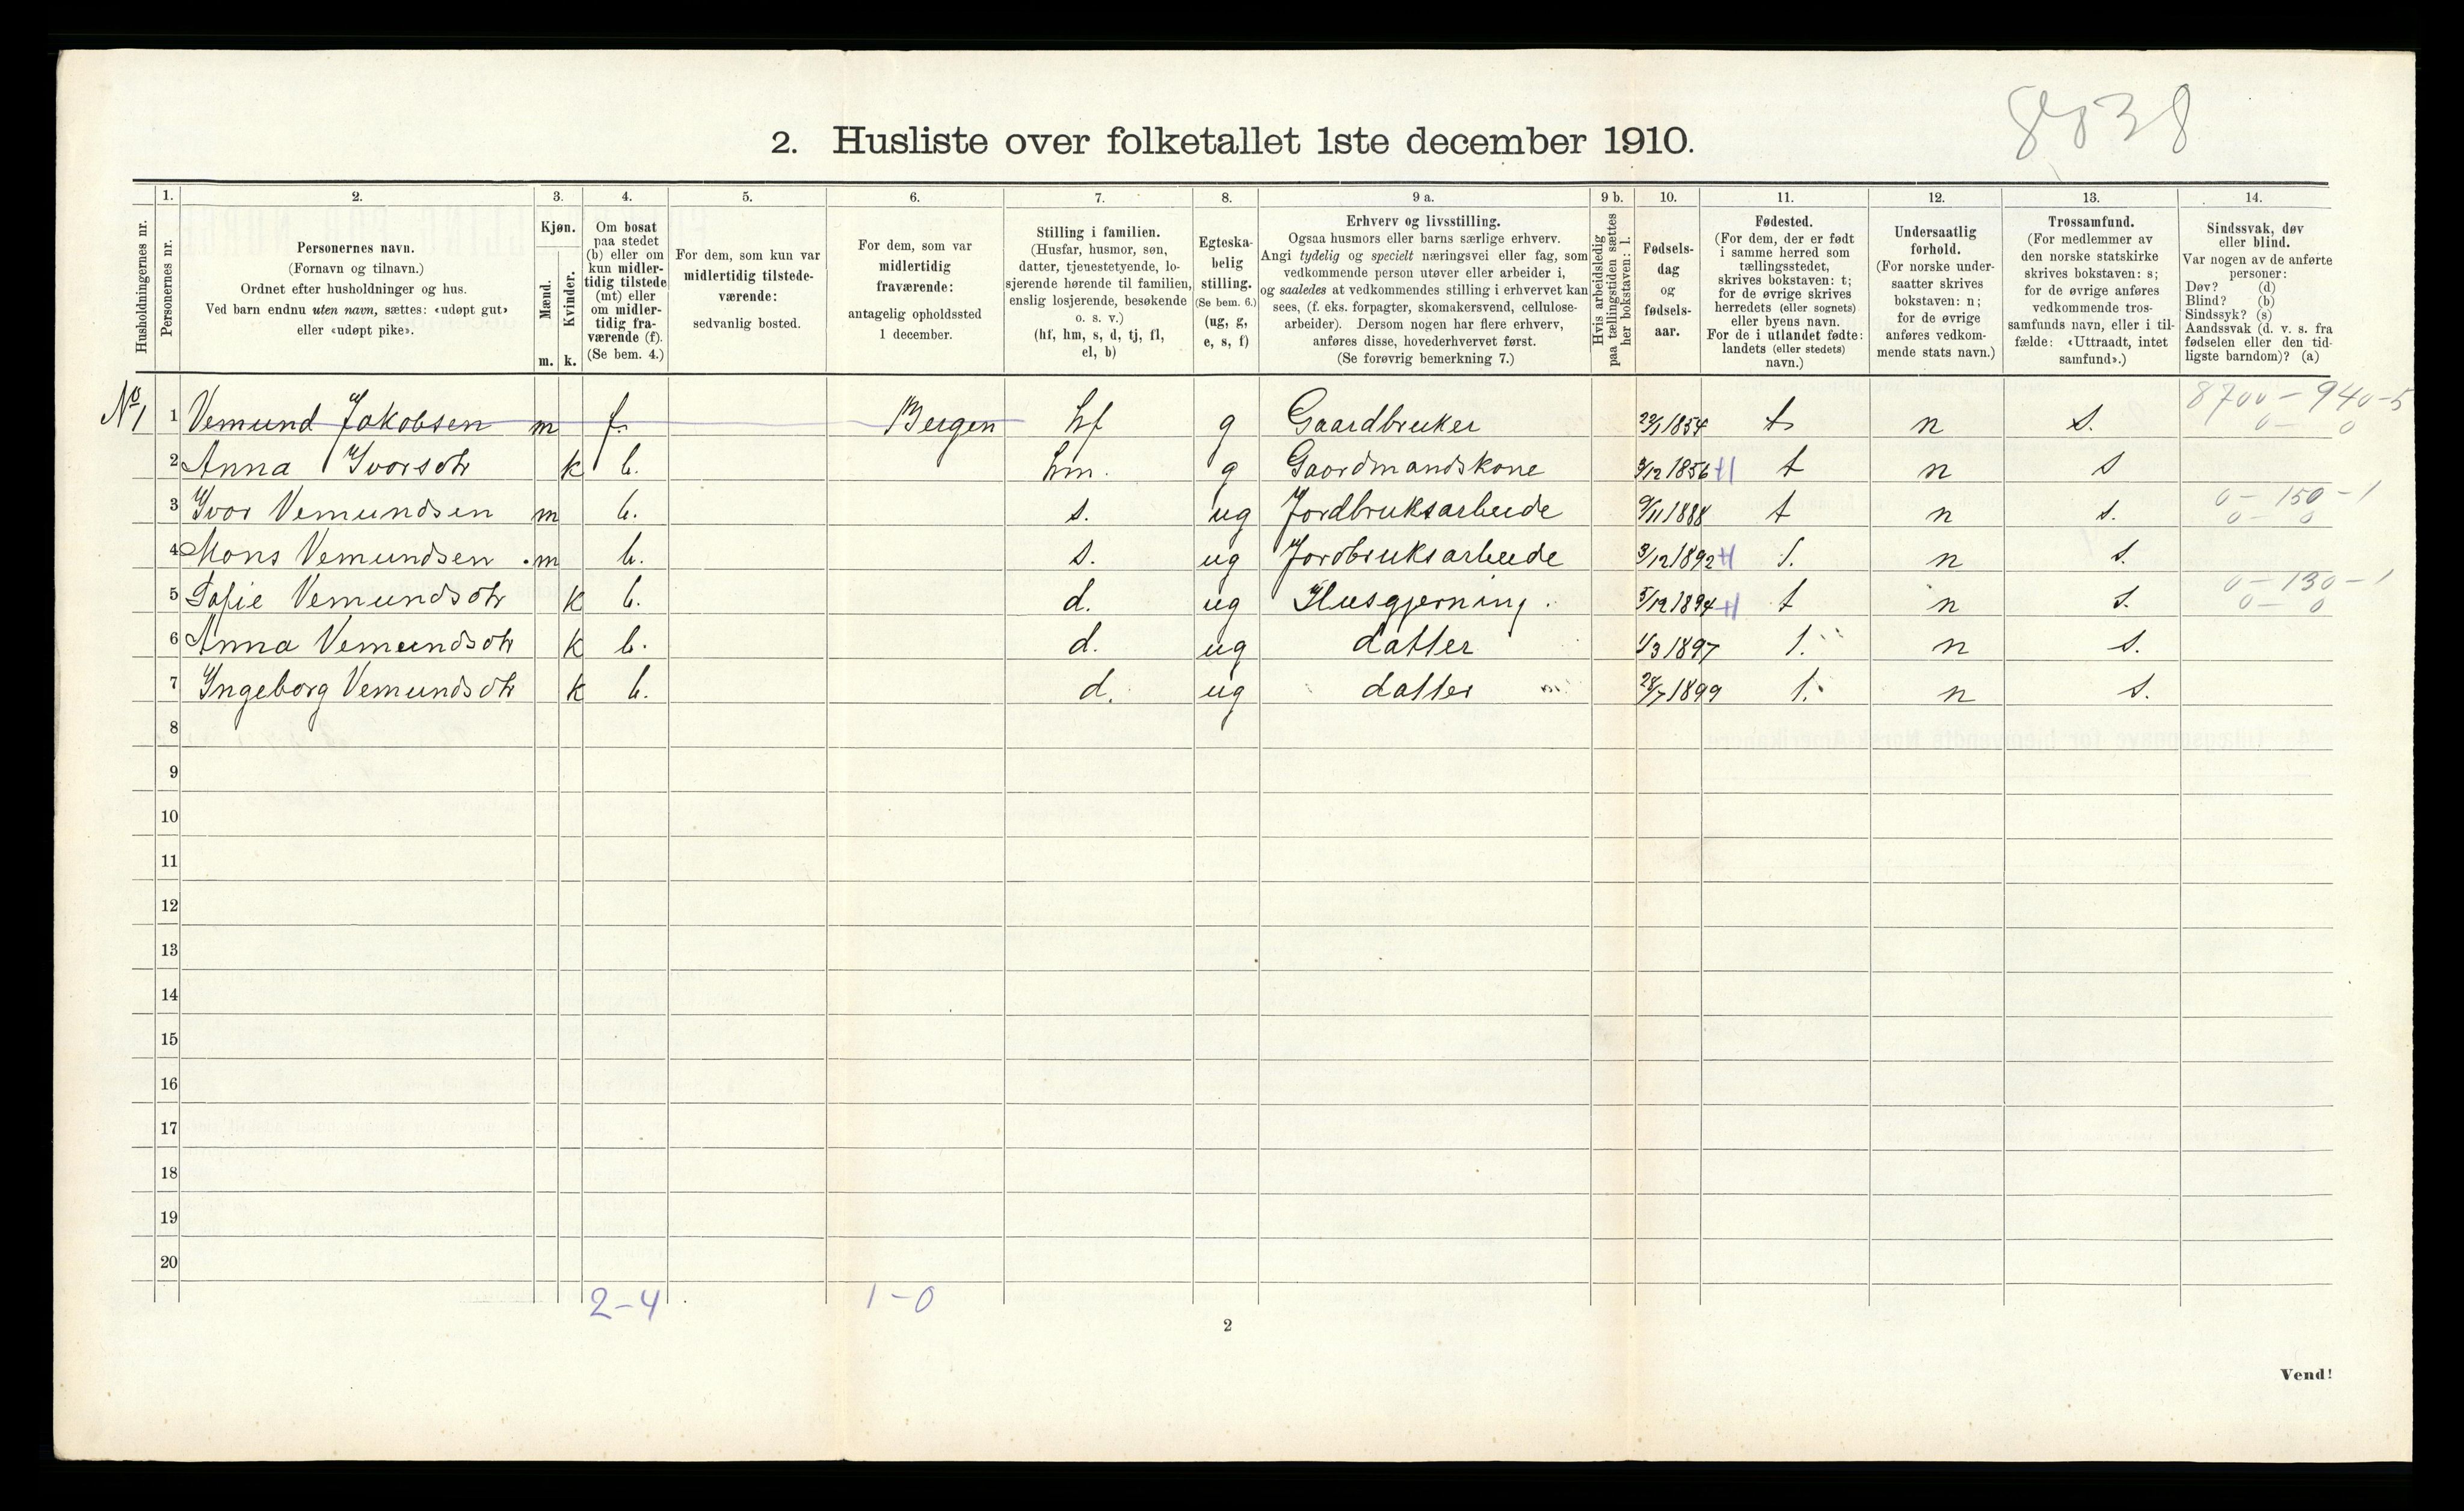 8838
2. Husliste over folketallet 1ste december 1910.
Husholdningernes nr.
1.
Personernes nr.
2.
Personernes navn.
(Fornavn og tilnavn.)
Ordnet efter husholdninger og hus.
Ved barn endnu uten navn, sættes: «udøpt gut»
eller «udøpt pike».
3.
Kjøn.
Mænd.
m.
Kvinder.
k.
4.
Om bosat
paa stedet
(b) eller om
kun midler-
tidig tilstede
(mt) eller
om midler-
tidig fra-
værende (f).
(Se bem. 4.)
5.
For dem, som kun var
midlertidig tilstede-
værende:
sedvanlig bosted.
6.
For dem, som var
midlertidig
fraværende:
antagelig opholdssted
1 december.
7.
Stilling i familien.
(Husfar, husmor, søn,
datter, tjenestetyende, lo-
sjerende hørende til familien,
enslig losjerende, besøkende
o. s. v.)
(hf, hm, s, d, tj, fl,
el, b)
8.
Egteska-
belig
stilling.
(Se bem. 6.)
(ug, g,
e, s, f)
9 a.
Erhverv og livsstilling.
Ogsaa husmors eller barns særlige erhverv.
Angi tydelig og specielt næringsvei eller fag, som
vedkommende person utøver eller arbeider i,
og saaledes at vedkommendes stilling i erhvervet kan
sees, (f. eks. forpagter, skomakersvend, cellulose-
arbeider). Dersom nogen har flere erhverv,
anføres disse, hovederhvervet først.
(Se forøvrig bemerkning 7.)
9 b.
Hvis arbeidsledig
paa tællingstiden sættes
her bokstaven: l.
10.
Fødsels-
dag
og
fødsels-
aar.
11.
Fødested.
(For dem, der er født
i samme herred som
tællingsstedet,
skrives bokstaven: t;
for de øvrige skrives
herredets (eller sognets)
eller byens navn.
For de i utlandet fødte:
landets (eller stedets)
navn.)
12.
Undersaatlig
forhold.
(For norske under-
saatter skrives
bokstaven: n;
for de øvrige
anføres vedkom-
mende stats navn.)
13.
Trossamfund.
(For medlemmer av
den norske statskirke
skrives bokstaven: s;
for de øvrige anføres
vedkommende tros-
samfunds navn, eller i til-
fælde: «Uttraadt, intet
samfund».)
14.
Sindssvak, døv
eller blind.
Var nogen av de anførte
personer:
Døv? (d)
Blind? (b)
Sindssyk? (s)
Aandssvak (d. v. s. fra
fødselen eller den tid-
ligste barndom)? (a)
8700 - 940-5
No 1 1 Vemund Jakobsen m f. Bergen hf g Gaardbruker 22/1 1854 t n s. 0 - 0
2 Anna Ivorsdtr k b. hm. g Gaordmandskone 9/12 1856 t n s
0 - 150 - 1
3 Ivor Vemundsen m b. s. ug Jordbruksarbeide 9/11 1888 t n s. 0 - 0
4 Mons Vemundsen m b. s. ug Jordbruksarbeide 3/12 1892 t. n s.
0 - 130 - 1
5 Sofie Vemundsdtr k b. d. ug Husgjerning. 5/12 1894 t n s. 0 - 0
6 Anna Vemundsdtr k b. d. ug datter 1/3 1897 t. n s.
7 Ingeborg Vemundsdtr k b. d. ug datter 28/7 1899 t. n s.
8
9
10
11
12
13
14
15
16
17
18
19
20
2-4 1-0
2
Vend!